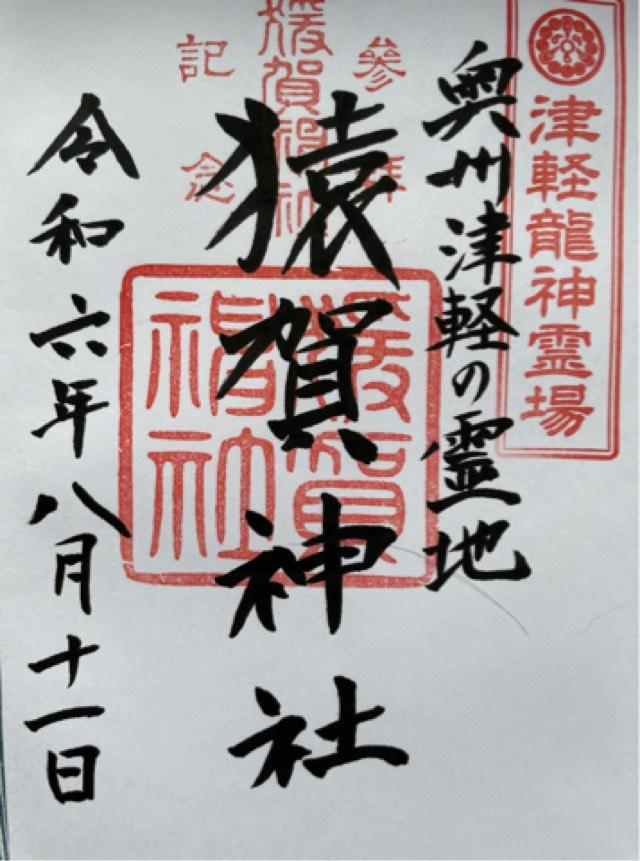 津軽龍神霊場
奥州津軽の霊地
参拝
猿賀神社
猿賀神社
猿賀神社
記念
令和六年八月十一日